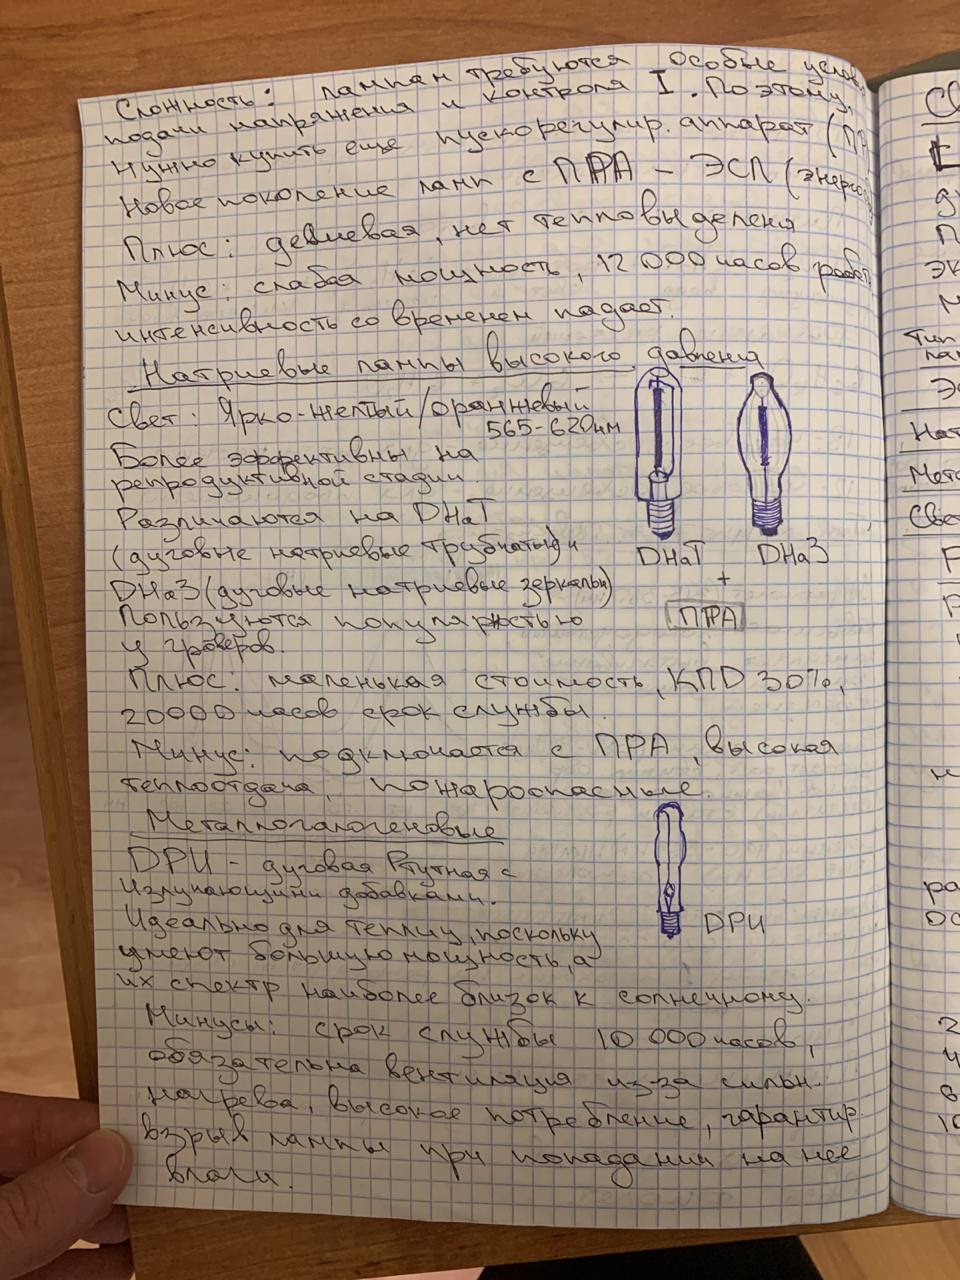 Сложность: лампам требуются особые услов
подачи напряжения и контроля I. Поэтому,
Нужно купить еще пускорегулир. аппарат (ПРА
Новое поколение ламп с ПРА – ЭСЛ (энерсо
Плюс: дешевая, нет тепловыделеня
Минус: слабая мощность, 12 000 часов работ
интенсивность со временем падает.
Натриевые лампы высокого давления
Свет: Ярко-желтый/оранжевый
565-620нм
Более эффективны на
репродуктивной стадии.
Различаются на ДНаТ
(дуговые натриевые трубчатые) и
ДНаЗ (дуговые натриевые зеркальн)
Пользуются популярностью
у гроверов.
ДНаТ ДНаЗ
+
ПРА
Плюс: маленькая стоимость, КПД 30%,
20000 часов срок службы.
Минус: подключается с ПРА, высокая
теплоотдача, пожароопасные.
Металлогалогеновые
ДРИ – дуговая Ртутная с
Излучающими добавками.
Идеально для теплиц, поскольку
имеют большую мощность, а
их спектр наиболее близок к солнечному.
ДРИ
Минусы: срок службы 10 000 часов,
обязательна вентиляция из-за сильн.
нагрева, высокое потребление, гарантир
взрыв лампы при попадании на нее
влаги.
Тип
лам
Нат
Мета
Све